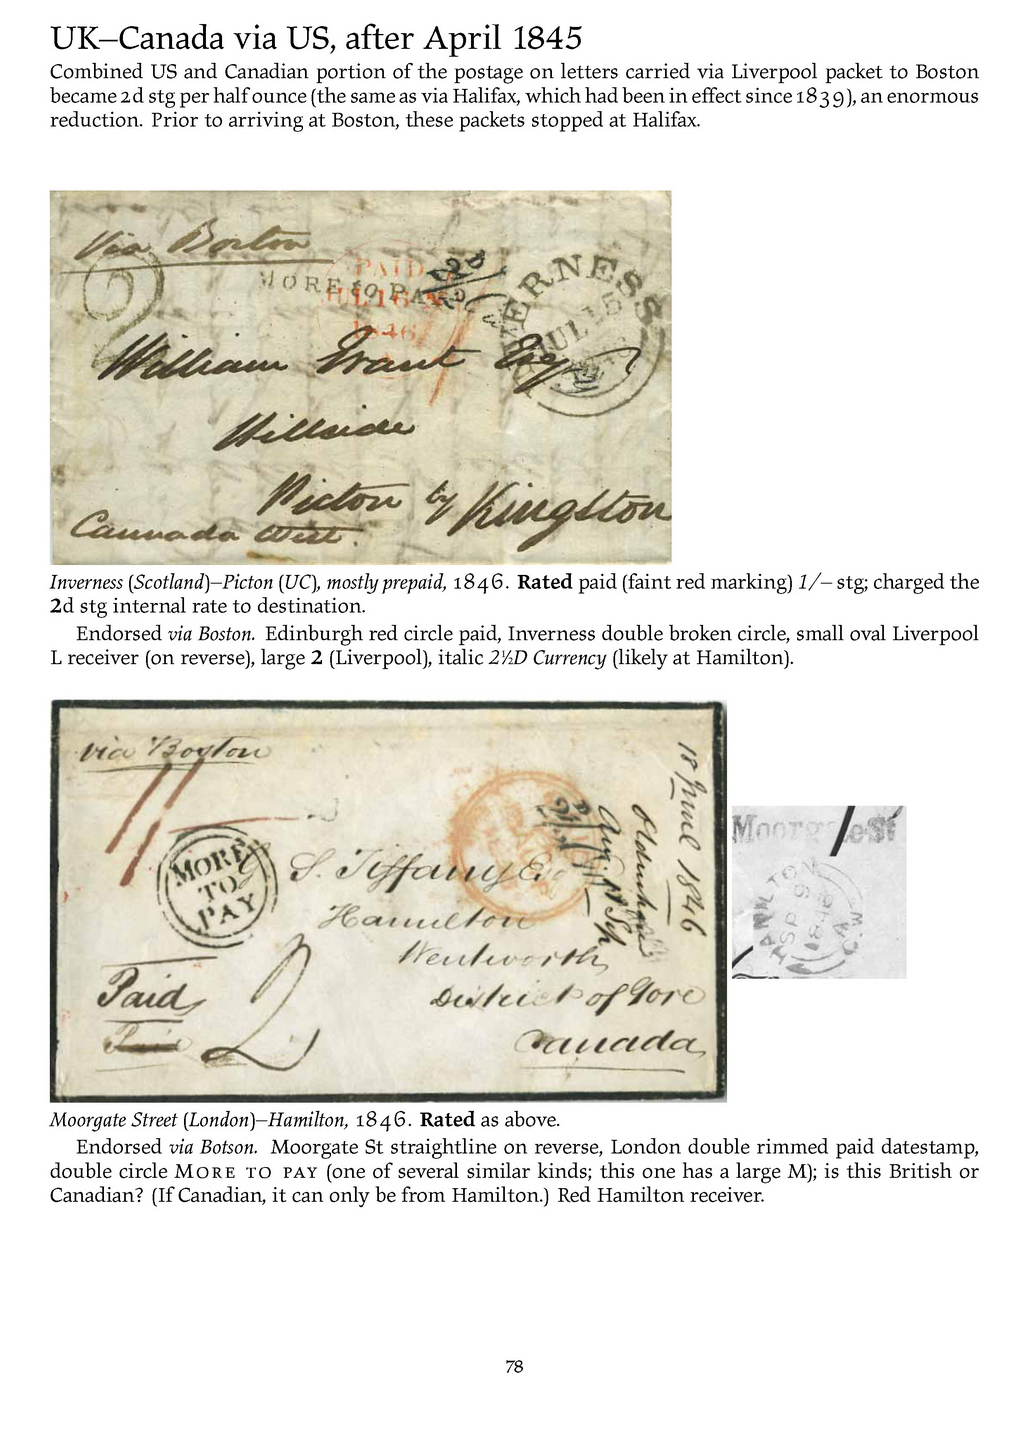 UK–Canada via US, after April 1845
Combined US and Canadian portion of the postage on letters carried via Liverpool packet to Boston
became 2d stg per half ounce (the same as via Halifax, which had been in effect since 1839), an enormous
reduction. Prior to arriving at Boston, these packets stopped at Halifax.
Via Boston
2
MORE to PAY
PAID
JUL 16
1846
ERNESS
JUL 15
William Grant Esq
Hillside
Picton by Kingston
Cannada West.
Inverness (Scotland)–Picton (UC), mostly prepaid, 1846. Rated paid (faint red marking) 1/– stg; charged the
2d stg internal rate to destination.
Endorsed via Boston. Edinburgh red circle paid, Inverness double broken circle, small oval Liverpool
L receiver (on reverse), large 2 (Liverpool), italic 2½D Currency (likely at Hamilton).
via Boston
1/
18 June 1846
MORE
TO
PAY
G. S. Tiffany Esq
Hamilton
Wentworth
District of Gore
Canada
Paid
2
Moorgate St
HAMILTON
SP 9
1846
C.W.
Moorgate Street (London)–Hamilton, 1846. Rated as above.
Endorsed via Botson. Moorgate St straightline on reverse, London double rimmed paid datestamp,
double circle MORE TO PAY (one of several similar kinds; this one has a large M); is this British or
Canadian? (If Canadian, it can only be from Hamilton.) Red Hamilton receiver.
78